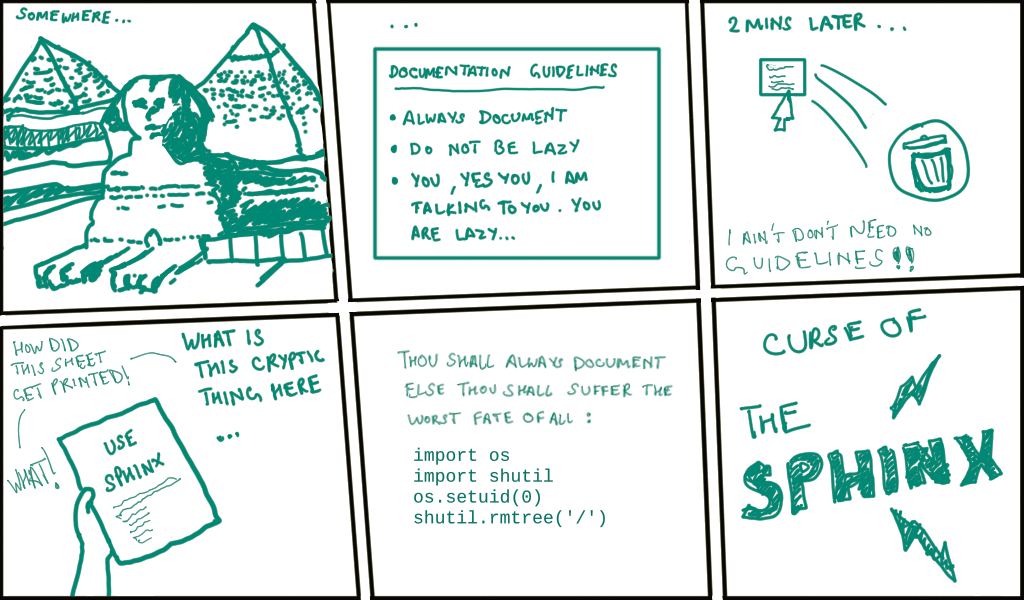 SOMEWHERE...
...
DOCUMENTATION GUIDELINES
• ALWAYS DOCUMENT
• DO NOT BE LAZY
• YOU, YES YOU, I AM
TALKING TO YOU. YOU
ARE LAZY...
2 MINS LATER ...
I AIN'T DON'T NEED NO
GUIDELINES!!
HOW DID
THIS SHEET
GET PRINTED!
WHAT!
WHAT IS
THIS CRYPTIC
THING HERE
...
USE
SPHINX
THOU SHALL ALWAYS DOCUMENT
ELSE THOU SHALL SUFFER THE
WORST FATE OF ALL :
import os
import shutil
os.setuid(0)
shutil.rmtree('/')
CURSE OF
THE
SPHINX